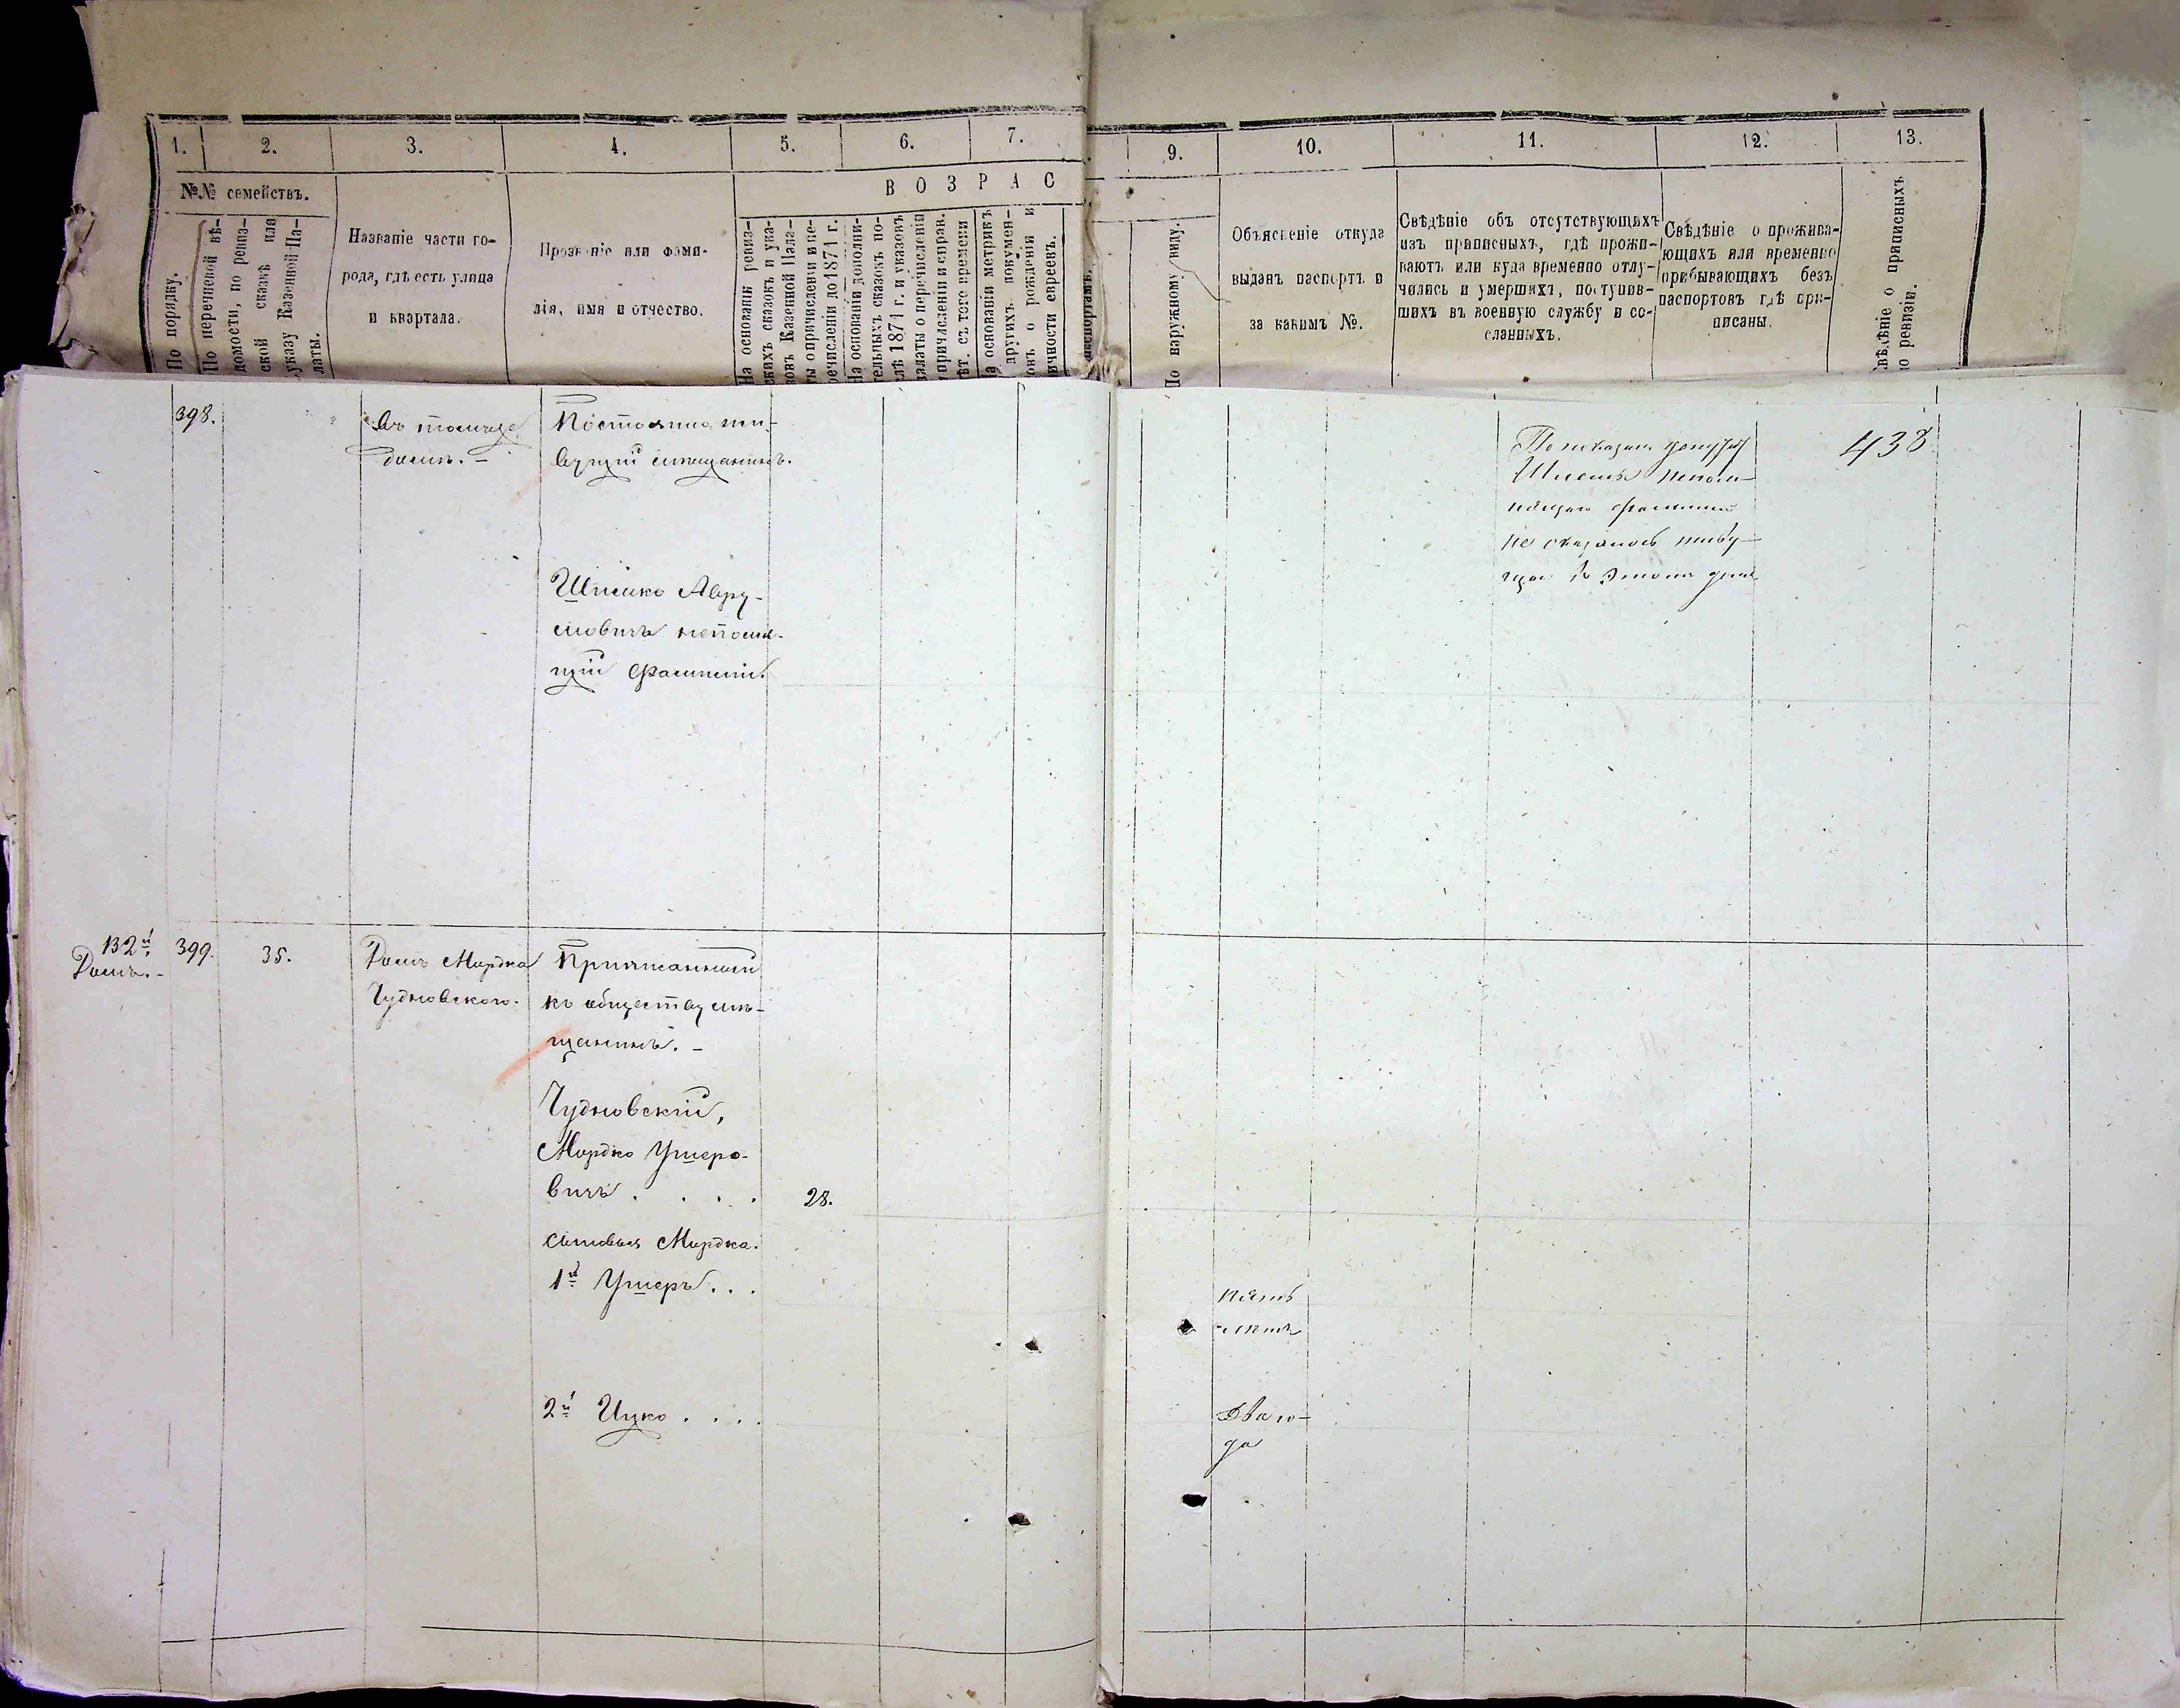 1.
2.
3.
4.
5.
6.
7.
9.
10.
11.
12.
13.
№№ семействъ.
По порядку.
По перечневой вѣ-
домости, по ревиз-
ской сказкѣ или
указу Казенной Па-
латы.
Названіе части го-
рода, гдѣ есть улица
и квартала.
Прозваніе или фами-
лія, имя и отчество.
ВОЗРАС
На основаніи ревиз-
скихъ сказокъ и ука-
зовъ Казенной Пала-
ты о причисленіи и пе-
речисленіи до 1871 г.
На основаніи дополни-
тельныхъ сказокъ по-
слѣ 1871 г. и указовъ
палаты о перечисленіи
и причисленіи и справ.
лѣт. съ того времени
На основаніи метрикъ
и другихъ докумен-
товъ о рожденіи и
личности евреевъ.
паспортамъ.
По наружному виду.
Объясненіе откуда
выданъ паспортъ и
за какимъ №.
Свѣдѣніе объ отсутствующихъ
изъ приписныхъ, гдѣ прожи-
ваютъ или куда временно отлу-
чились и умершихъ, поступив-
шихъ въ военную службу и со-
сланныхъ.
Свѣдѣніе о прожива-
ющихъ или временно
прибывающихъ безъ
паспортовъ гдѣ при-
писаны.
Свѣдѣніе о приписныхъ
по ревизіи.
398.
Въ томъ же
домѣ. –
Постоянно жи-
вущій мѣщанинъ.
Шмилко Авру-
мовичъ непомня-
щій фамиліи.
По показан.
непом-
нящаго фамиліи
не оказалось живу-
щаго въ этомъ домѣ
438
132й
Домъ. –
399.
35.
Домъ Мордка
Чудновскаго.
Приписанный
къ обществу мѣ-
щанинъ. –
Чудновскій,
Мордко Ушеро-
вичъ . . . .
28.
Сыновья Мордка.
1й Ушеръ . . .
пять
лѣтъ
2й Ицко . . . .
Два го-
да